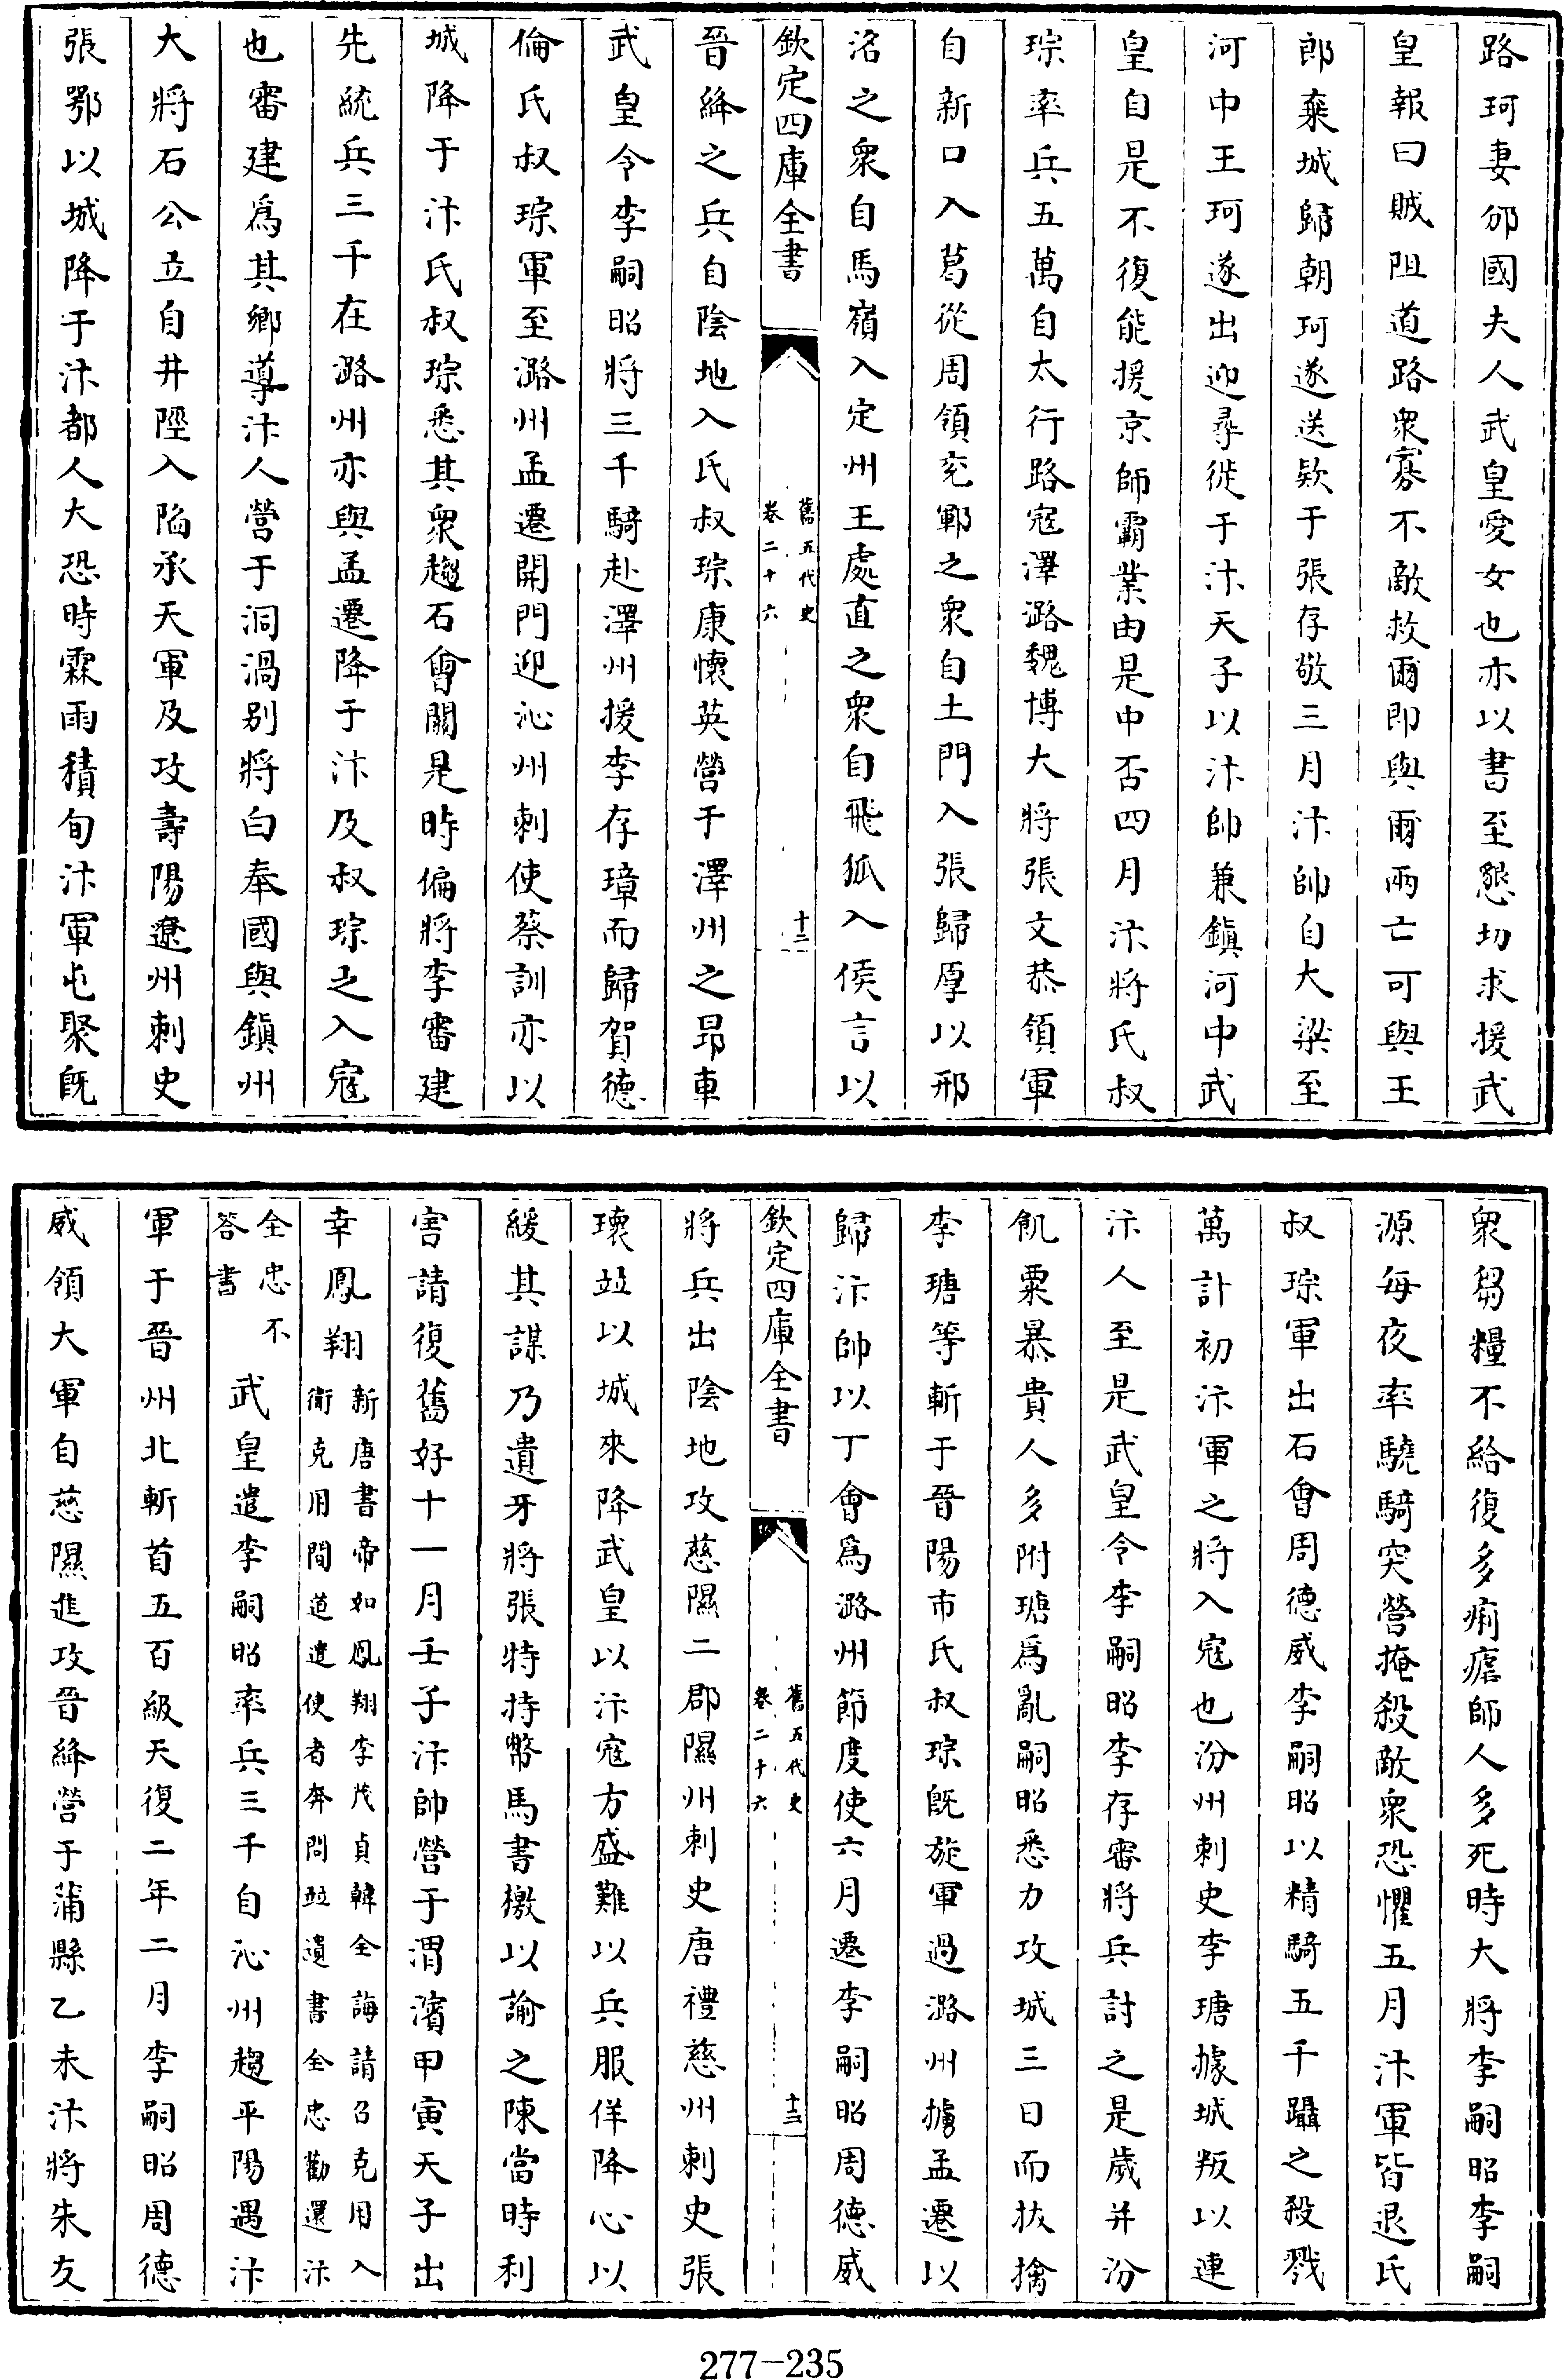 路珂妻邠國夫人武皇愛女也亦以書至懇切求援武
皇報曰賊阻道路衆寡不敵救爾即與爾兩亡可與王
郎棄城歸朝珂遂送款于張存敬三月汴帥自大梁至
河中王珂遂出迎尋徙于汴天子以汴帥兼鎮河中武
皇自是不復能援京師霸業由是中否四月汴將氏叔
琮率兵五萬自太行路寇澤潞魏博大將張文恭領軍
自新口入葛從周領兖鄆之衆自土門入張歸厚以邢
洺之衆自馬嶺入定州王處直之衆自飛狐入侯言以
欽定四庫全書
舊五代史
卷二十六
十二
晉絳之兵自陰地入氏叔琮康懷英營于澤州之昂車
武皇令李嗣昭將三千騎赴澤州援李存璋而歸賀德
倫氏叔琮軍至潞州孟遷開門迎沁州刺使蔡訓亦以
城降于汴氏叔琮悉其衆趨石會關是時偏將李審建
先統兵三千在潞州亦與孟遷降于汴及叔琮之入寇
也審建爲其鄉導汴人營于洞渦别將白奉國與鎮州
大將石公立自井陘入陷承天軍及攻壽陽遼州刺史
張鄂以城降于汴都人大恐時霖雨積旬汴軍屯聚既
衆芻糧不給復多痢瘧師人多死時大將李嗣昭李嗣
源每夜率驍騎突營掩殺敵衆恐懼五月汴軍皆退氏
叔琮軍出石會周德威李嗣昭以精騎五千躡之殺戮
萬計初汴軍之將入寇也汾州刺史李瑭據城叛以連
汴人至是武皇令李嗣昭李存審將兵討之是歲并汾
飢粟暴貴人多附瑭爲亂嗣昭悉力攻城三日而拔擒
李瑭等斬于晉陽市氏叔琮既旋軍過潞州擄孟遷以
歸汴帥以丁會爲潞州節度使六月遷李嗣昭周德威
欽定四庫全書
舊五代史
卷二十六
十三
將兵出陰地攻慈隰二郡隰州刺史唐禮慈州刺史張
瓌竝以城來降武皇以汴寇方盛難以兵服佯降心以
緩其謀乃遣牙將張特持幣馬書檄以諭之陳當時利
害請復舊好十一月壬子汴帥營于渭濱甲寅天子出
幸鳳翔
新唐書帝如鳳翔李茂貞韓全誨請召克用入
衛克用間道遣使者奔問竝遺書全忠勸還汴
全忠不
答書
武皇遣李嗣昭率兵三千自沁州趨平陽遇汴
軍于晉州北斬首五百級天復二年二月李嗣昭周德
威領大軍自慈隰進攻晉絳營于蒲縣乙未汴將朱友
277-235